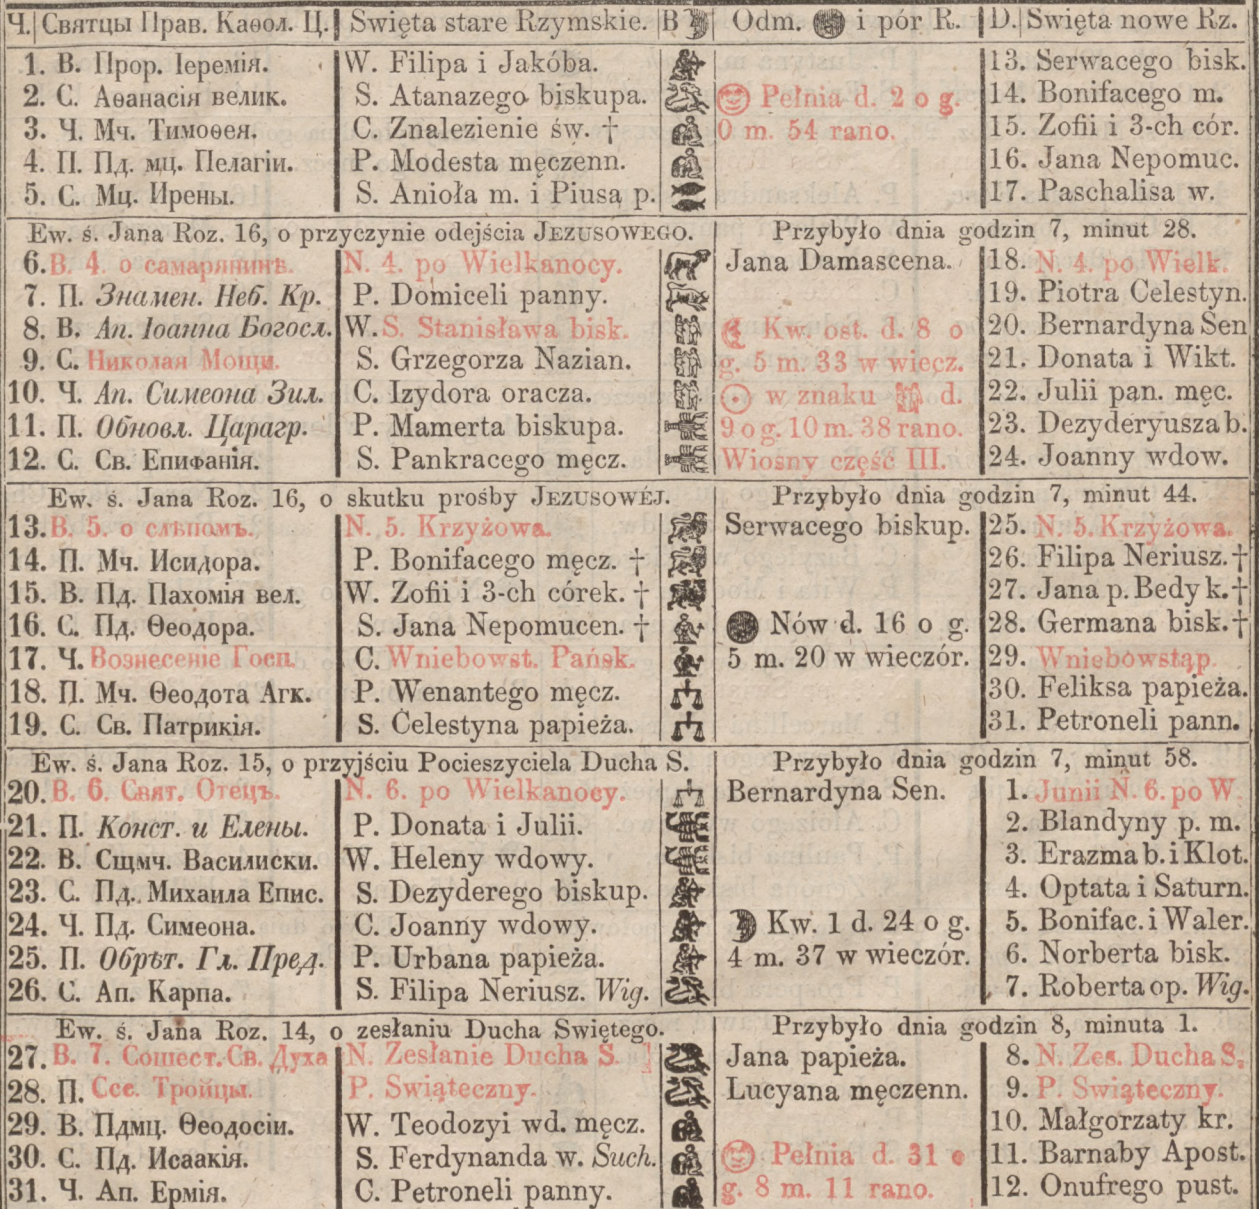 Ч. Святцы Прав. Каѳол. Ц. Święta stare Rzymskie. B Odm. i pór R. D. Święta nowe Rz.
1. В. Прор. Іеремія. W. Filipa i Jakóba. 13. Serwacego bisk.
2. С. Аѳанасія велик. S. Atanazego biskupa. Pełnia d. 2 o g. 14. Bonifacego m.
3. Ч. Мч. Тимоѳея. C. Znalezienie św. † 0 m. 54 rano. 15. Zofii i 3-ch cór.
4. П. Пд. мц. Пелагіи. P. Modesta męczenn. 16. Jana Nepomuc.
5. С. Мц. Ирены. S. Anioła m. i Piusa p. 17. Paschalisa w.
Ew. ś. Jana Roz. 16, o przyczynie odejścia JEZUSOWEGO. Przybyło dnia godzin 7, minut 28.
6. В. 4. о самарянинѣ. N. 4. po Wielkanocy. Jana Damascena. 18. N. 4. po Wielk.
7. П. Знамен. Неб. Кр. P. Domiceli panny. 19. Piotra Celestyn.
8. В. Ап. Іоанна Богосл. W. S. Stanisława bisk. Kw. ost. d. 8 o 20. Bernardyna Sen
9. С. Николая Мощи. S. Grzegorza Nazian. g. 5 m. 33 w wiecz. 21. Donata i Wikt.
10. Ч. Ап. Симеона Зил. C. Izydora oracza. w znaku d. 22. Julii pan. męc.
11. П. Обновл. Царагр. P. Mamerta biskupa. 9 o g. 10 m. 38 rano. 23. Dezyderyusza b.
12. С. Св. Епифанія. S. Pankracego męcz. Wiosny część III. 24. Joanny wdow.
Ew. ś. Jana Roz. 16, o skutku prośby JEZUSOWÉJ. Przybyło dnia godzin 7, minut 44.
13. В. 5. о слѣпомъ. N. 5. Krzyżowa. Serwacego biskup. 25. N. 5. Krzyżowa.
14. П. Мч. Исидора. P. Bonifacego męcz. † 26. Filipa Neriusz. †
15. В. Пд. Пахомія вел. W. Zofii i 3-ch córek. † 27. Jana p. Bedy k. †
16. С. Пд. Ѳеодора. S. Jana Nepomucen. † Nów d. 16 o g. 28. Germana bisk. †
17. Ч. Вознесеніе Госп. C. Wniebowst. Pańsk. 5 m. 20 w wieczór. 29. Wniebowstąp.
18. П. Мч. Ѳеодота Агк. P. Wenantego męcz. 30. Feliksa papieża.
19. С. Св. Патрикія. S. Celestyna papieża. 31. Petroneli pann.
Ew. ś. Jana Roz. 15, o przyjściu Pocieszyciela Ducha S. Przybyło dnia godzin 7, minut 58.
20. В. 6. Свят. Отецъ. N. 6. po Wielkanocy. Bernardyna Sen. 1. Junii N. 6. po W.
21. П. Конст. и Елены. P. Donata i Julii. 2. Blandyny p. m.
22. В. Сщмч. Василиски. W. Heleny wdowy. 3. Erazma b. i Klot.
23. С. Пд. Михаила Епис. S. Dezyderego biskup. 4. Optata i Saturn.
24. Ч. Пд. Симеона. C. Joanny wdowy. Kw. 1 d. 24 o g. 5. Bonifac. i Waler.
25. П. Обрѣт. Гл. Пред. P. Urbana papieża. 4 m. 37 w wieczór. 6. Norberta bisk.
26. С. Ап. Карпа. S. Filipa Neriusz. Wig. 7. Roberta op. Wig.
Ew. ś. Jana Roz. 14, o zesłaniu Ducha Swiętego. Przybyło dnia godzin 8, minuta 1.
27. В. 7. Сошест. Св. Духа N. Zesłanie Ducha S. Jana papieża. 8. N. Zes. Ducha S.
28. П. Ссе. Тройцы. P. Swiąteczny. Lucyana męczenn. 9. P. Swiąteczny.
29. В. Пдмц. Ѳеодосіи. W. Teodozyi wd. męcz. 10. Małgorzaty kr.
30. С. Пд. Исаакія. S. Ferdynanda w. Such. Pełnia d. 31 o 11. Barnaby Apost.
31. Ч. Ап. Ермія. C. Petroneli panny. g. 8 m. 11 rano. 12. Onufrego pust.